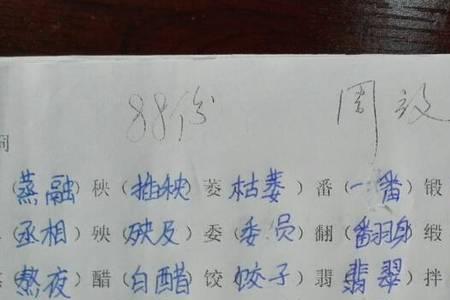 88份 周
（蒸融）秧（插秧）萎（枯萎）番（一番）锻
（丞相）殃（殃及）委（委员）翻（翻身）缎
（熬夜）醋（白醋）饺（饺子）翡（翡翠）拌